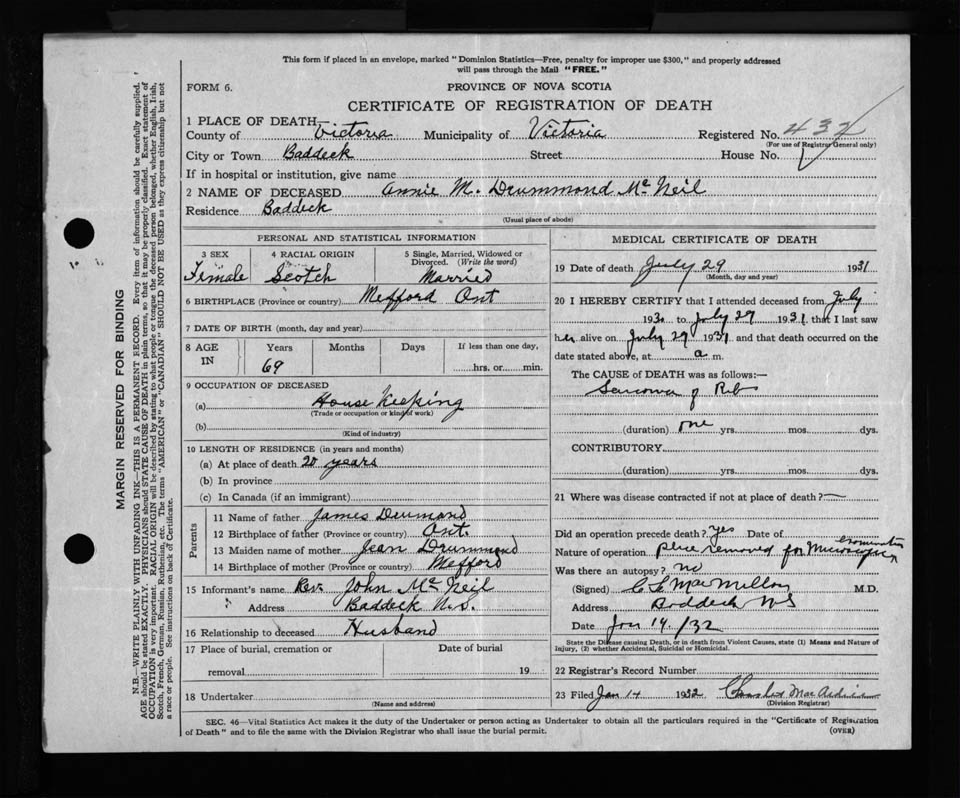 This form if placed in an envelope, marked "Dominion Statistics—Free, penalty for improper use $300," and properly addressed
will pass through the Mail "FREE."
FORM 6.
PROVINCE OF NOVA SCOTIA
CERTIFICATE OF REGISTRATION OF DEATH
1 PLACE OF DEATH—
County of Victoria Municipality of Victoria Registered No. 432
(For use of Registrar General only)
City or Town Baddeck Street House No.
If in hospital or institution, give name
2 NAME OF DECEASED Annie M. Drummond McNeil
Residence Baddeck
(Usual place of abode)
PERSONAL AND STATISTICAL INFORMATION
3 SEX 4 RACIAL ORIGIN 5 Single, Married, Widowed or Divorced. (Write the word)
Female Scotch Married
6 BIRTHPLACE (Province or country) Mefford Ont
7 DATE OF BIRTH (month, day and year)
8 AGE IN Years Months Days If less than one day,
69 hrs. or min.
9 OCCUPATION OF DECEASED
(a) House Keeping
(Trade or occupation or kind of work)
(b)
(Kind of industry)
10 LENGTH OF RESIDENCE (in years and months)
(a) At place of death 20 years
(b) In province
(c) In Canada (if an immigrant)
Parents
11 Name of father James Drumond
12 Birthplace of father (Province or country) Ont.
13 Maiden name of mother Jean Drummond
14 Birthplace of mother (Province or country) Mefford
15 Informant's name Rev. John McNeil
Address Baddeck N.S.
16 Relationship to deceased Husband
17 Place of burial, cremation or removal Date of burial 19
18 Undertaker
(Name and address)
MEDICAL CERTIFICATE OF DEATH
19 Date of death July 29 1931
(Month, day and year)
20 I HEREBY CERTIFY that I attended deceased from July
1930 to July 29 1931 that I last saw
her alive on July 29 1931 and that death occurred on the
date stated above, at a m.
The CAUSE of DEATH was as follows:—
Sarcoma of Rib
(duration) one yrs. mos. dys.
CONTRIBUTORY
(duration) yrs. mos. dys.
21 Where was disease contracted if not at place of death? —
Did an operation precede death? yes Date of
Nature of operation piece removed for Microscopic examination
Was there an autopsy? no
(Signed) C L MacMillan M.D.
Address Baddeck NS
Date Jan 14/32
State the Disease causing Death, or in death from Violent Causes, state (1) Means and Nature of
Injury, (2) whether Accidental, Suicidal or Homicidal.
22 Registrar's Record Number
23 Filed Jan 14 1932 Charles
(Division Registrar)
SEC. 46—Vital Statistics Act makes it the duty of the Undertaker or person acting as Undertaker to obtain all the particulars required in the "Certificate of Registration
of Death" and to file the same with the Division Registrar who shall issue the burial permit.
(OVER)
MARGIN RESERVED FOR BINDING
N.B.—WRITE PLAINLY WITH UNFADING INK—THIS IS A PERMANENT RECORD. Every item of information should be carefully supplied.
AGE should be stated EXACTLY. PHYSICIANS should STATE CAUSE OF DEATH in plain terms, so that it may be properly classified. Exact statement of
OCCUPATION is very important. RACIAL ORIGIN will be described by stating to what people or tongue the deceased person belonged, whether English, Irish,
Scotch, French, German, Russian, Ruthenian, etc. The terms "AMERICAN" or "CANADIAN" SHOULD NOT BE USED as they express citizenship but not
a race or people. See instructions on back of Certificate.